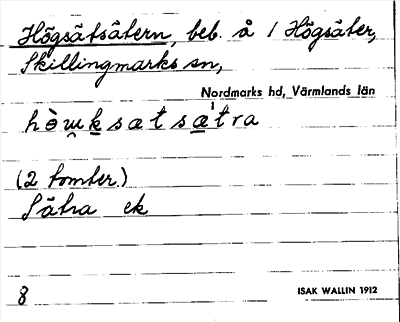 Högsätsätern, beb. å 1 Högsäter,
Skillingmarks sn,
Nordmarks hd, Värmlands län
(2 tomter.)
Sätra ek
8
ISAK WALLIN 1912